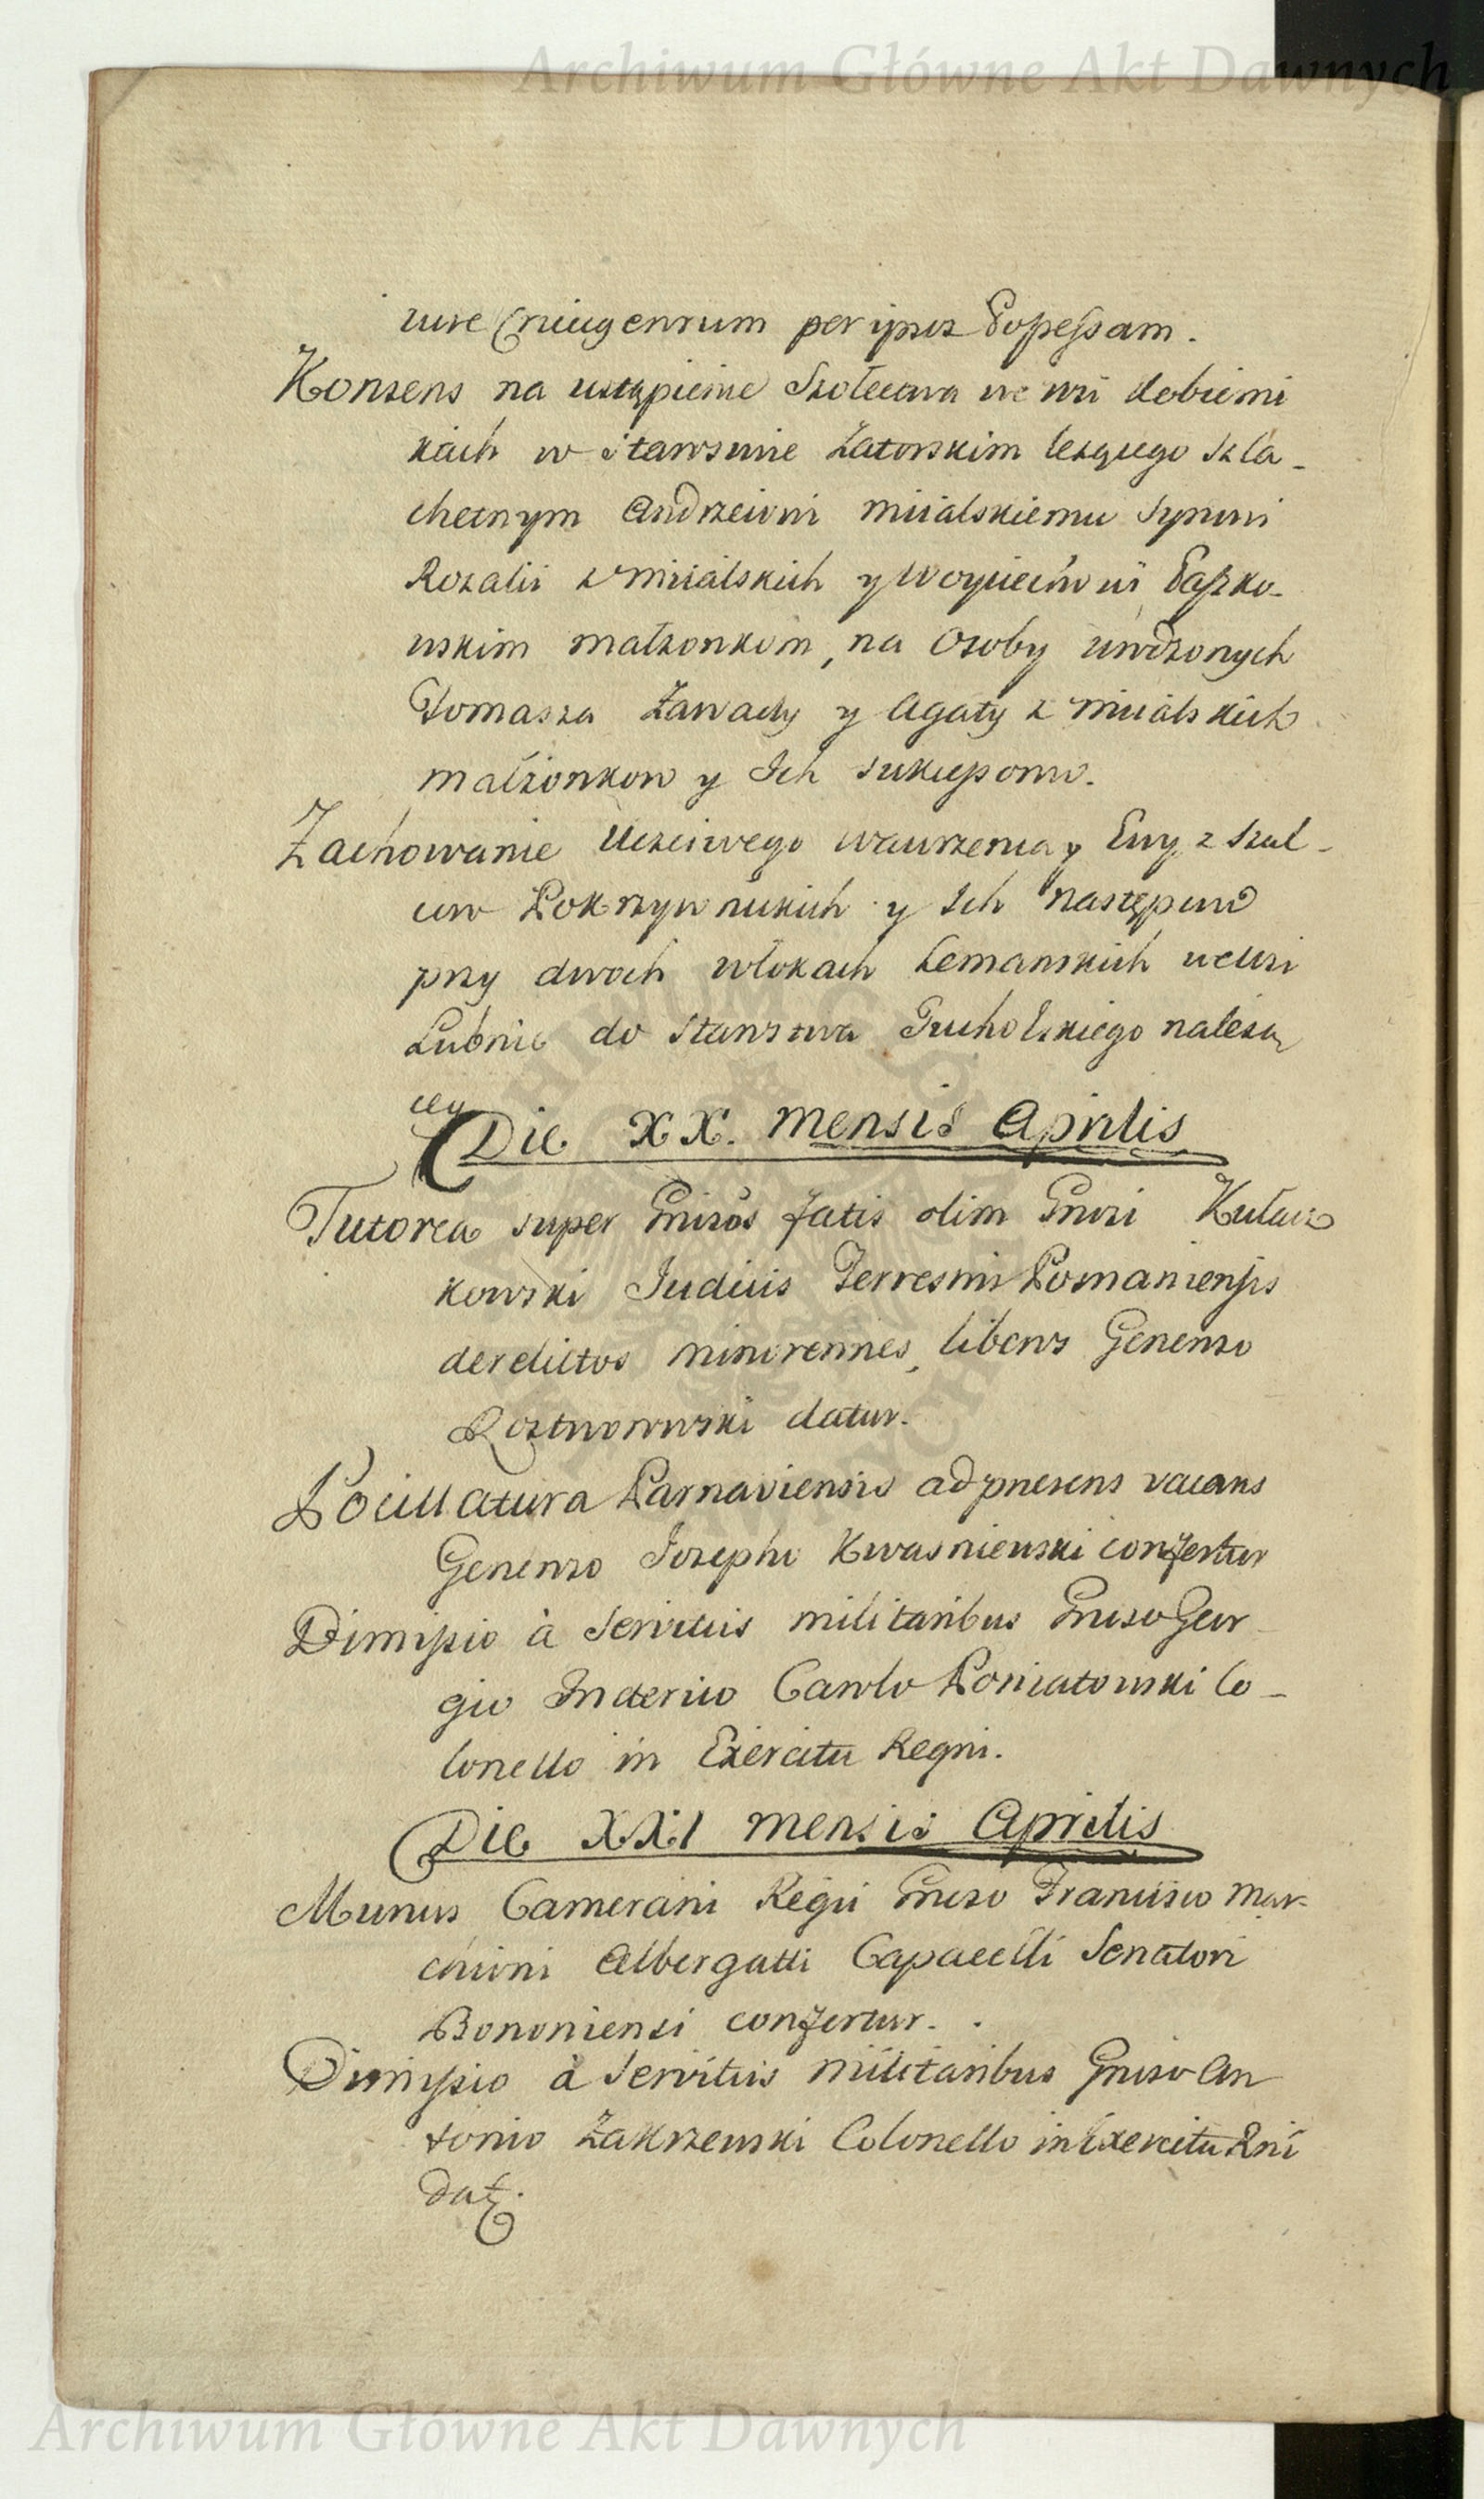 Archiwum Główne Akt Dawnych
iure Cniugentium per ipsos Possessam.
Konsens na ustąpienie Szolectwa we wsi dobieni
kach w Starostwie Zatorskim leżącego Szla-
chetnym Andrzeiowi Miialskiemu Synowi
Rozalii z Miialskich y Woyciechowi Paszko-
wskim małzonkom, na Osoby urodzonych
Tomasza Zawady y Agaty z Miialskich
małżonkow y Ich sukcessorow.
Zachowanie Uczciwego Wawrzenca y Ewy z Szul-
cow Pokrzywnickich y Ich następcow
przy dwoch włokach Lemanskich we wsi
Lubnie do Starostwa Tucholskiego należą
cey
Die XX. Mensis Aprilis
Tutorea super Gnisos fatis olim Gnosi Kułacz
kowski Judicis Terrestris Posnaniensis
derelictos minorennes, libens Generoso
Rostworowski datur.
Pocillatura Parnaviensis ad praesens vacans
Generoso Josepho Kwasniewski confertur
Dimissio à Servitiis militaribus Gneroso Geor-
gio Friderico Carolo Poniatowski Co-
lonello in Exercitu Regni.
Die XXI Mensis Aprilis
Munus Camerarii Regii Gneroso Francisco Mar-
chioni Albergatti Capacelli Senatori
Bononiensi confertur.
Dimissio à Servitiis militaribus Gneroso An
tonio Zakrzewski Colonello in Exercitu Rni
dat.
Archiwum Główne Akt Dawnych